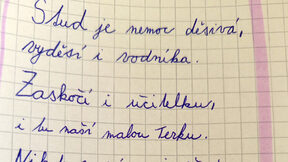 Stud je nemoc děsivá,
vyděsí i vodníka.
Zaskočí i učitelku,
i tu naší malou Terku.